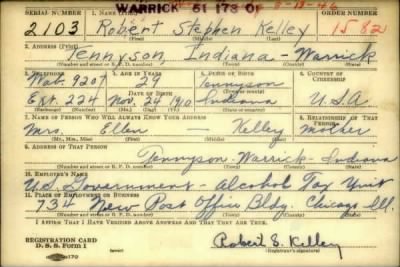 WARRICK 61 173 OF
SERIAL NUMBER 1. NAME (Print) ORDER NUMBER
2103 Robert Stephen Kelley 1582
(First) (Middle) (Last)
2. ADDRESS (Print)
Tennyson, Indiana - Warrick
(Number and street or R. F. D. number) (Town) (County) (State)
3. TELEPHONE 4. AGE IN YEARS 5. PLACE OF BIRTH 6. COUNTRY OF CITIZENSHIP
Wab. 9207 29 Tennyson
DATE OF BIRTH (Town or county)
Ext. 224 Nov. 24 1910 Indiana U.S.A
(Exchange) (No.) (Mo.) (Day) (Yr.) (State or country)
7. NAME OF PERSON WHO WILL ALWAYS KNOW YOUR ADDRESS 8. RELATIONSHIP OF THAT PERSON
Mrs. Ellen - Kelley Mother
(Mr., Mrs., Miss) (First) (Middle) (Last)
9. ADDRESS OF THAT PERSON
Tennyson - Warrick - Indiana
(Number and street or R. F. D. number) (Town) (County) (State)
10. EMPLOYER'S NAME
U.S. Government - Alcohol Tax Unit
11. PLACE OF EMPLOYMENT OR BUSINESS
734 New Post Office Bldg. Chicago Ill.
(Number and street or R. F. D. number) (Town) (County) (State)
I AFFIRM THAT I HAVE VERIFIED ABOVE ANSWERS AND THAT THEY ARE TRUE.
REGISTRATION CARD
D. S. S. Form 1 Robert S. Kelley
(Registrant's signature)